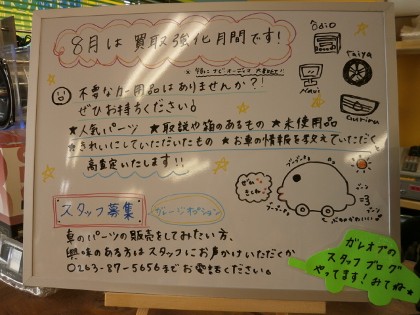 8月は 買取強化月間です!
不要なカー用品はありませんか?!
ぜひお持ちください。
★人気パーツ ★取説や箱のあるもの ★未使用品
★きれいにしていただいたもの ★お車の情報を教えていただくと
高査定いたします!!
Odio
Navi
Taiya
スタッフ募集
ガレージオプション
車のパーツの販売をしてみたい方、
興味のある方はスタッフにお声かけいただくか
0263-87-5656までお電話ください。
ガレオプの
スタッフブログ
やってます!みてね★